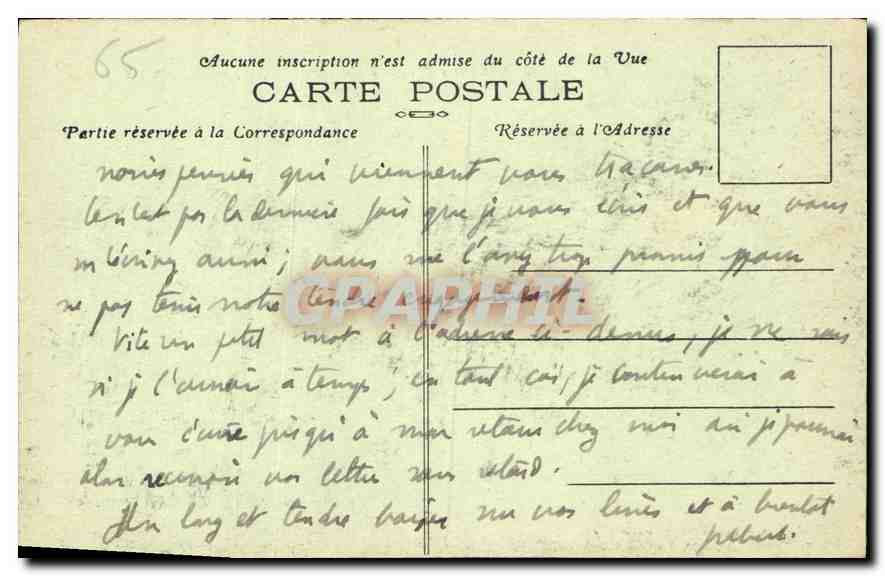 65
Aucune inscription n'est admise du côté de la Vue
CARTE POSTALE
Partie réservée à la Correspondance
Réservée à l'Adresse
noires pensées qui viennent vous tracasser.
C'est pas la dernière fois que je vous écris et que vous
m'écrivez aussi ; vous me l'avez trop promis pour
ne pas tenir notre tendre engagement.
CPAPHIL
Vite un petit mot à l'adresse ci-dessus, je ne sais
si je l'aurai à temps ; en tout cas, je continuerai à
vous écrire jusqu'à mon retour chez moi où je pourrai
alors recevoir vos lettres sans retard.
Un long et tendre baiser sur vos lèvres et à bientot